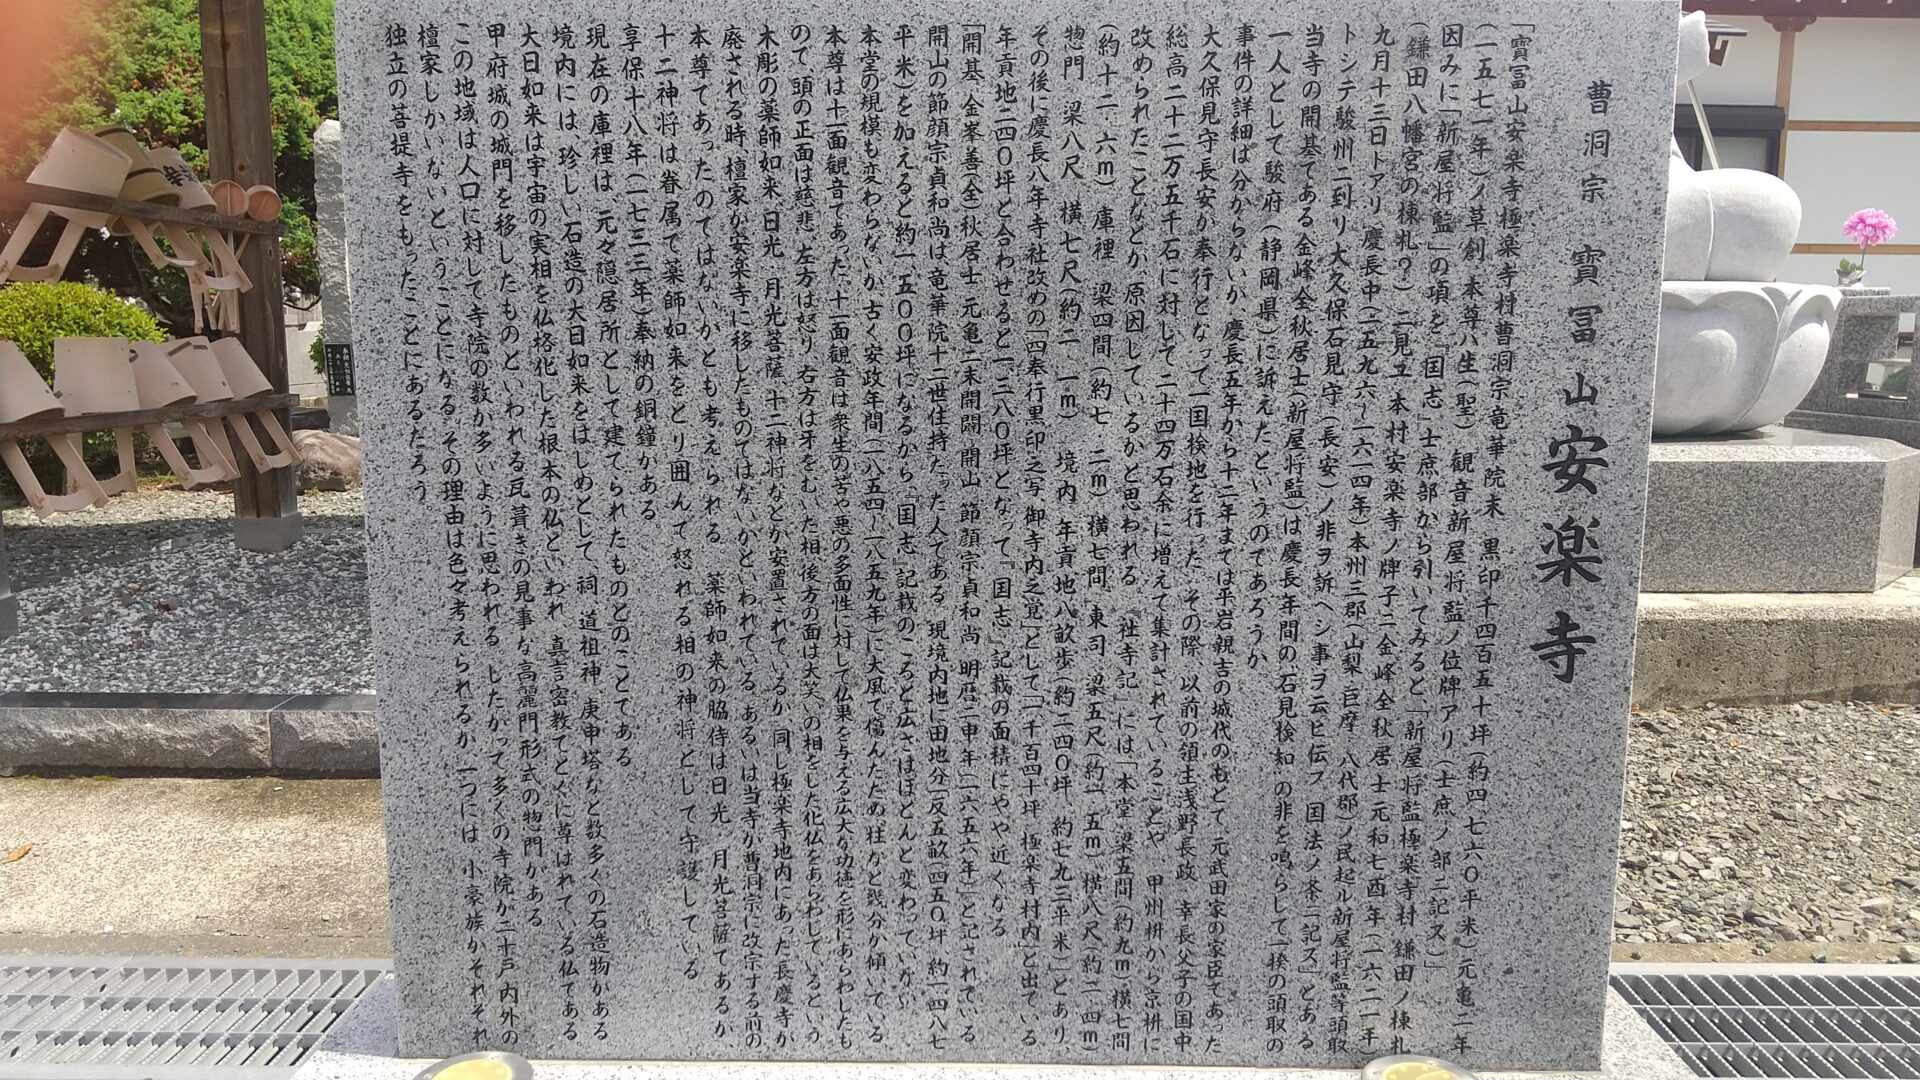 曹洞宗 寳冨山安楽寺
「寳冨山安楽寺極楽寺村曹洞宗竜華院末 黒印千四百五十坪(約四、七六〇平米)元亀二年
(一五七一年)ノ草創 本尊ハ生(聖)観音新屋将監ノ位牌アリ(士庶ノ部ニ記ス)」
因みに「新屋将監」の項を『国志』士庶部から引いてみると「新屋将監極楽寺村 鎌田ノ棟札
(鎌田八幡宮の棟札?)ニ見ユ本村安楽寺ノ牌子ニ金峰全秋居士元和七酉年(一六二一年)
九月十三日トアリ慶長中(一五九六~一六一四年)本州三郡(山梨、巨摩、八代郡)ノ民起ル新屋将監等頭取
トシテ駿州ニ到リ大久保石見守(長安)ノ非ヲ訴ヘシ事ヲ云ヒ伝フ 国法ノ条ニ記ス」とある
当寺の開基である金峰全秋居士(新屋将監)は慶長年間の"石見検知"の非を鳴らして一揆の頭取の
一人として駿府(静岡県)に訴えたというのであろうか。
事件の詳細は分からないが、慶長五年から十二年までは平岩親吉の城代のもとで、元武田家の家臣であった
大久保見守長安が奉行となって一国検地を行った。その際、以前の領主浅野長政、幸長父子の国中
総高二十二万五千石に対して二十四万石余に増えて集計されていることや、甲州枡から京枡に
改められたことなどが原因しているかと思われる。『社寺記』には「本堂、梁五間(約九m)横七間
(約十二・六m)庫裡、梁四間(約七・二m)横七間、東司、梁五尺(約一・五m)横八尺(約二・四m)
惣門、梁八尺、横七尺(約二・一m)境内、年貢地八畝歩(約二四〇坪、約七九三平米)」とあり、
その後に慶長八年寺社改めの「四奉行黒印之写御寺内之覚」として「一千百四十坪 極楽寺村内」と出ている
年貢地二四〇坪と合わせると一、三八〇坪となって『国志』記載の面積にやや近くなる
「開基、金峯善(全)秋居士 元亀二末開闢、開山 節顔宗貞和尚 明暦二申年」(一六五六年)」と記されている
開山の節顔宗貞和尚は竜華院十二世住持だった人である。現境内地に田地分一反五畝(四五〇坪、約一、四八七
平米)を加えると約一、五〇〇坪になるから『国志』記載のころと広さはほとんど変わっていない
本堂の規模も変わらないが、古く安政年間(一八五四~一八五九年)に大風で傷んだため柱など幾分か傾いている
本尊は十一面観音であった、十一面観音は衆生の苦や悪の多面性に対して仏果を与える広大な功徳を形にあらわしたも
ので、頭の正面は慈悲、左方は怒り、右方は牙をむいた相後方の面は大笑いの相をした化仏をあらわしているという
木彫の薬師如来、日光、月光菩薩、十二神将などが安置されているが、同じ極楽寺地内にあった長慶寺が
廃される時、檀家が安楽寺に移したものではないかといわれている。あるいは当寺が曹洞宗に改宗する前の
本尊であったのではないかとも考えられる。 薬師如来の脇侍は日光、月光菩薩であるが、
十二神将は眷属で薬師如来をとり囲んで怒れる相の神将として守護している
享保十八年(一七三三年)奉納の銅鐘がある。
現在の庫裡は、元々隠居所として建てられたものとのことである
境内には、珍しい石造の大日如来をはじめとして、祠、道祖神、庚申塔など数多くの石造物がある
大日如来は宇宙の実相を仏格化した根本の仏といわれ、真言密教でとくに尊ばれている仏である
甲府城の城門を移したものといわれる瓦葺きの見事な高麗門形式の惣門がある
この地域は人口に対して寺院の数が多いように思われる。したがって多くの寺院が二十戸内外の
檀家しかいないということになる。その理由は色々考えられるが、一つには、小豪族がそれぞれ
独立の菩提寺をもったことにあるだろう。